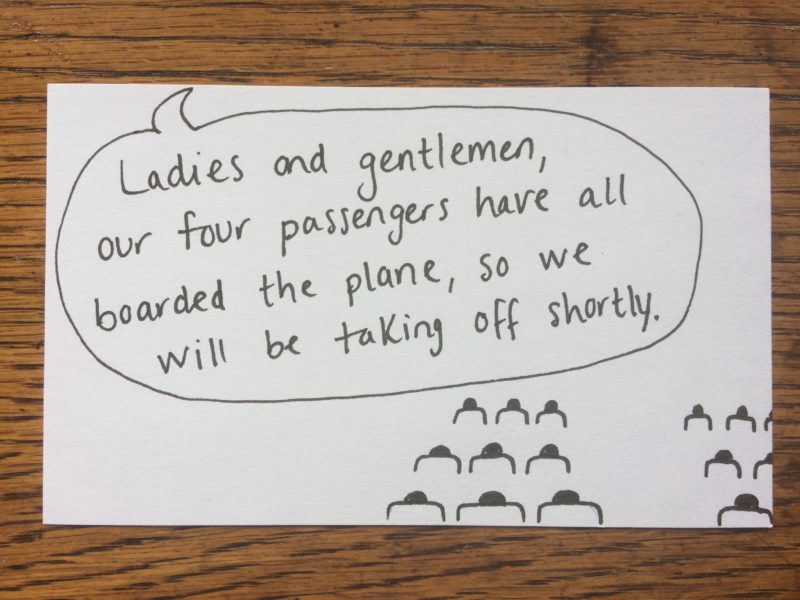 Ladies and gentlemen,
our four passengers have all
boarded the plane, so we
will be taking off shortly.